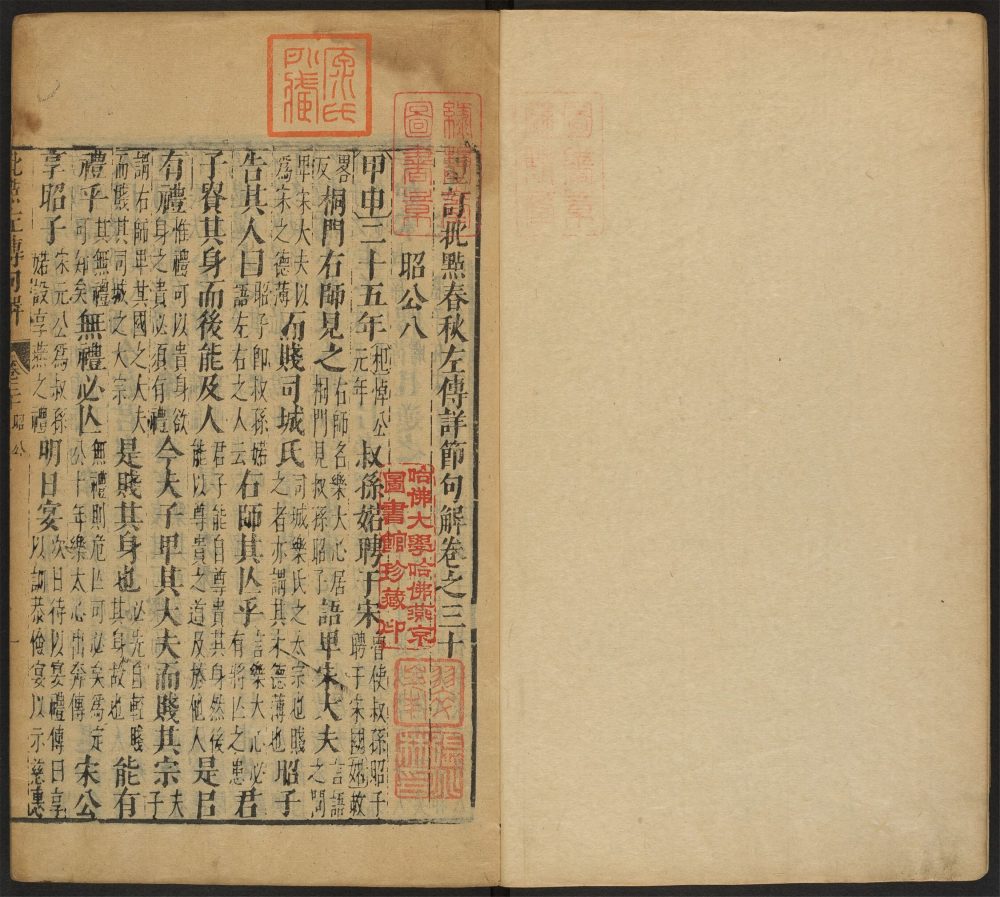 重訂批點春秋左傳詳節句解卷之三十
昭公八
甲申二十五年杞悼公元年叔孫婼聘于宋魯使叔孫昭子聘于宋國婼敕
畧反桐門右師見之右師名樂大心居桐門見叔孫昭子語卑宋大夫言語之間
卑宋大夫以為宋之德薄而賤司城氏司城樂氏之大宗也賤之者亦謂其才德薄也昭子
告其人曰昭子即叔孫婼語左右之人云右師其亾乎言樂大心必有將亾之患君
子貴其身而後能及人君子能自尊貴其身然後能以尊貴之道及於他人是㠯
有禮惟禮可以貴身欲身之貴必須有禮今夫子卑其大夫而賤其宗夫子
謂右師卑其國之大夫而賤其同城之大宗是賤其身也必先自輕賤其身故也能有
禮乎其無禮可知矣無禮必亾無禮則危亾可必矣為定公十年樂大心出奔傳宋公
享昭子宋元公為叔孫婼設享燕之禮明日宴次日待以宴禮傳曰享以訓恭儉宴以示慈惠
批點左傳句解
卷三十
昭公
一
哈佛大學哈佛燕京
圖書館珍藏印